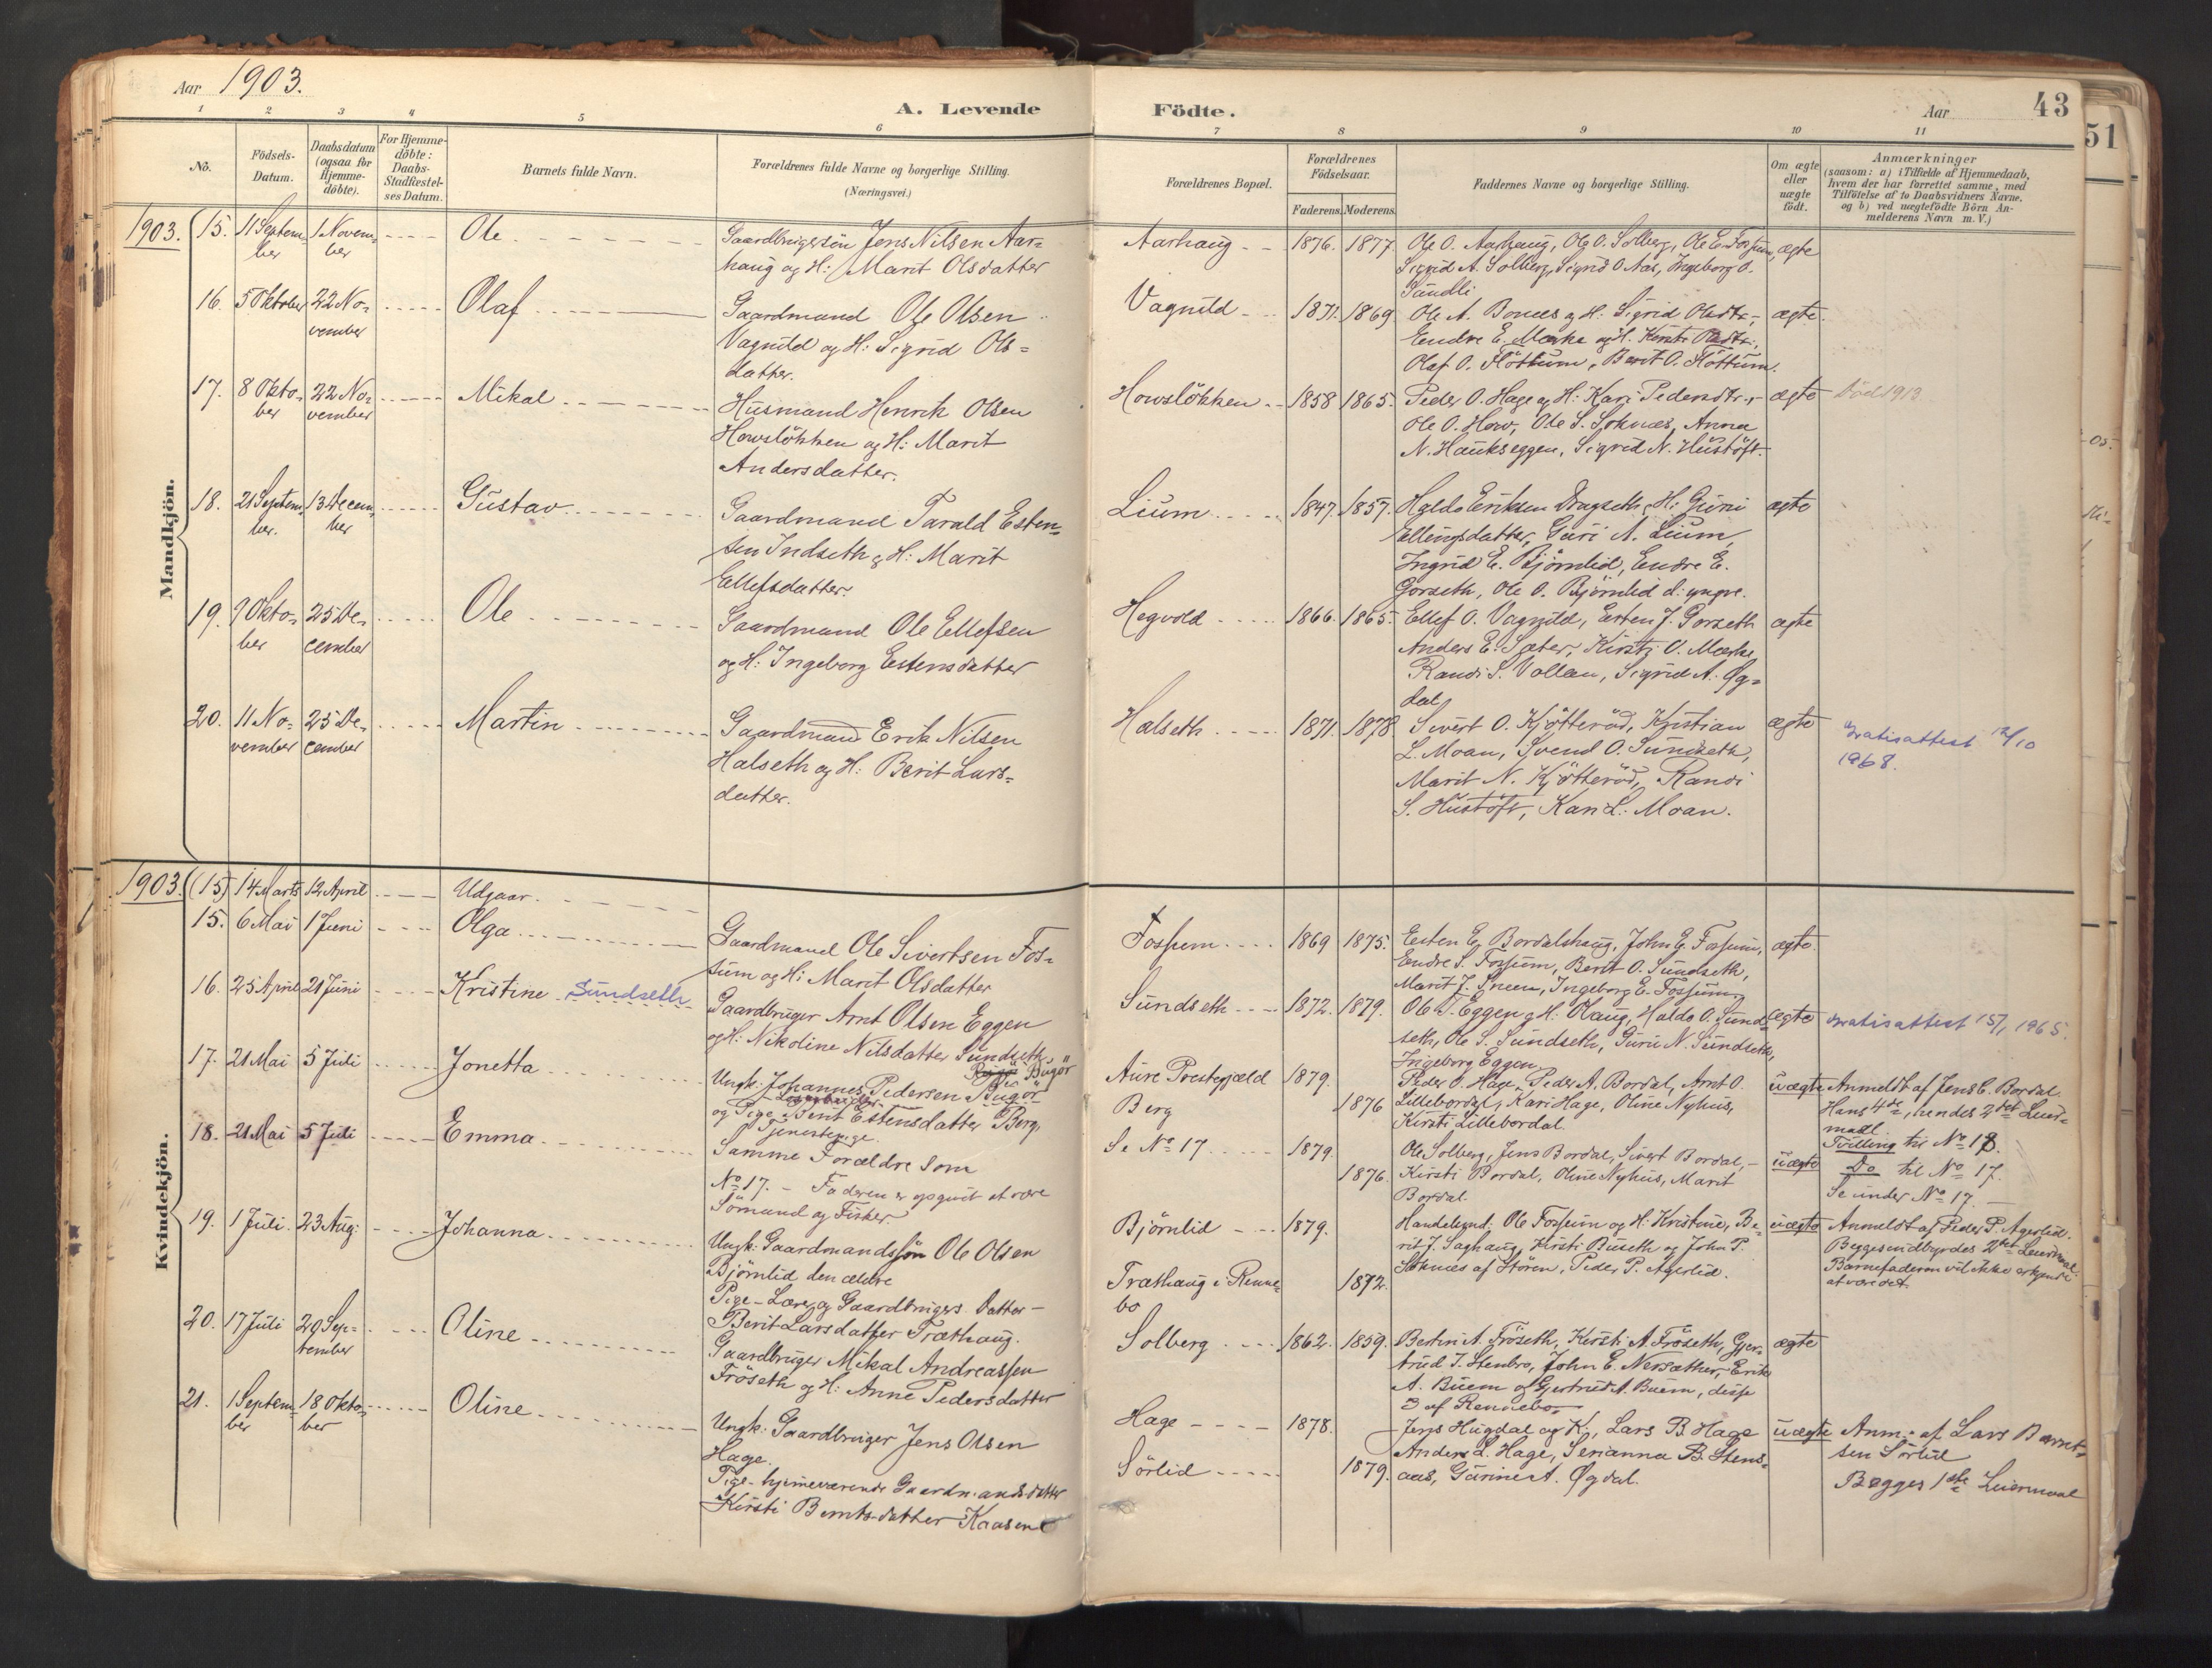 Aar 1903.
A. Levende
Födte.
Aar 43
51
1 2 3 4 5 6 7 8 9 10 11
No.
Födsels-
Datum.
Daabsdatum
(ogsaa for
Hjemme-
döbte).
For Hjemme-
döbte:
Daabs-
Stadfæstel-
ses Datum.
Barnets fulde Navn.
Forældrenes fulde Navne og borgerlige Stilling.
(Næringsvei.)
Forældrenes Bopæl.
Forældrenes
Födselsaar.
Faderens. Moderens.
Faddernes Navne og borgerlige Stilling.
Om ægte
eller
uægte
födt.
Anmærkninger
(saasom: a) i Tilfælde af Hjemmedaab,
hvem der har forrettet samme, med
Tilföielse af to Daabsvidners Navne.
og b) ved uægtefödte Börn An-
melderens Navn m. V.)
Mandkjön.
1903. 15. 11 Septem-
ber
1 Novem-
ber
Ole
Gaardbrugersön Jens Nilsen Aar-
haug og H: Marit Olsdatter
Aarhaug 1876. 1877.
Ole O. Aarhaug, Ole O. Solberg, Ole E. Fossum,
Sigrid A. Solberg, Sigrid O. Aas, Ingeborg O.
Sundli
ægte
16. 5 Oktober 22 No-
vember
Olaf
Gaardmand Ole Olsen
Vagnild og H: Sigrid Ols-
datter.
Vagnild 1871. 1869
Ole A. Bones og H. Sigrid Olsdtr.,
Endre E. Mærke og H. Kirsti Olsdtr.,
Olaf O. Flöttum, Berit O. Flöttum.
ægte.
17. 8 Okto-
ber
22 No-
vember
Mikal
Husmand Henrik Olsen
Howslökken og H: Marit
Andersdatter.
Howslökken 1858 1865.
Peder O. Hage og H: Kari Pedersdtr.,
Ole O. How, Ole S. Soknes, Anna
N. Haukseggen, Sigrid N. Hustöft.
ægte Död 1913.
18. 21 Septem-
ber.
13 Decem-
ber
Gustav
Gaardmand Tarald Esten-
sen Indseth og H: Marit
Ellefsdatter.
Lium 1847. 1857.
Haldo Eriksen Dragseth, H: Guru
Ellingsdatter, Guri A. Lium,
Ingrid E. Björnlid, Endre E.
Gorseth, Ole O. Björnlid d: yngre.
ægte
19. 9 Okto-
ber
25 De-
cember
Ole
Gaardmand Ole Ellefsen
og H: Ingeborg Estensdatter
Hegvold 1866. 1865.
Ellef O. Vagnild, Esten J. Gorseth
Anders E. Sæter, Kirsti O. Mærke
Randi S. Vollan, Sigrid A. Øg-
dal
ægte
20. 11 No-
vember
25 De-
cember
Martin
Gaardmand Erik Nilsen
Halseth og H: Berit Lars-
datter.
Halseth 1871. 1878
Sivert O. Kjötteröd, Kristian
L. Moan, Svend O. Sundseth,
Marit N. Kjötteröd, Randi
S. Hustöft, Kari L. Moan.
ægte
Gratisattest 12/10
1968.
Kvindekjön.
1903. (15) 14 Marts 12 April Udgaar.
15. 6 Mai 1 Juni Olga
Gaardmand Ole Sivertsen Fos-
sum og H: Marit Olsdatter
Fossum 1869 1875.
Esten E. Bordalshaug, John E. Fossum,
Endre S. Fossum, Berit O. Sundseth,
Marit J. Sneen, Ingeborg E. Fossum
ægte.
16. 25 April 21 Juni Kristine Sundseth
Gaardbruger Arnt Olsen Eggen
og H: Nikoline Nilsdatter Sundseth
Sundseth 1872. 1879.
Ole T. Eggen og H: Olaug, Haldo O. Sund-
seth, Ole S. Sundseth, Guru N. Sundseth,
Ingeborg Eggen
ægte Gratisattest 15/1 1965.
17. 21 Mai 5 Juli Jonetta
Bugör
Ungk: Johannes Pedersen Bugör
og Pige Berit Estensdatter Berg,
Tjenestepige.
Aure Prestegjæld 1879.
Berg 1876
Peder O. Hage, Peder A. Bordal, Arnt O.
Lillebordal, Kari Hage, Oline Nyhus,
Kirsti Lillebordal.
uægte Anmeldt af Jens E. Bordal
Hans 4de, hendes 2det Leier-
maal.
Tvilling til No 18.
18. 21 Mai 5 Juli Emma
Samme Forældre som
No 17. – Faderen er opgivet at være
Sömand og Fisker.
Se No 17 1879.
1876.
Ole Solberg, Jens Bordal, Sivert Bordal,
Kirsti Bordal, Oline Nyhus, Marit
Bordal.
uægte Do til No 17.
Se under No 17
19. 1 Juli. 23 Aug: Johanna
Ungk: Gaardmandssön Ole Olsen
Björnlid den ældre
Pige – Lærer og Gaardbrugers Datter –
Berit Larsdatter Træthaug.
Björnlid 1879.
Træthaug i Renne-
bo 1872.
Handelsmd: Ole Fossum og H: Kristine, Be-
rit J. Saghaug, Kirsti Bueth og John P.
Soknes af Stören, Peder P. Agerlid.
uægte Anmeldt af Peder P. Agerlid.
Begges indbyrdes 2det Leiermaal.
Barnefaderen vil ikke erkjende
at være det.
20. 17 Juli 20 Sep-
tember
Oline
Gaardbruger Mikal Andreassen
Fröseth og H: Anne Pedersdatter
Solberg 1862. 1859.
Berten A. Fröseth, Kirsti A. Fröseth, Gjer-
trud J. Stenbro, John E. Nersæther, Erik
A. Buem og Gjertrud A. Buem, disse
3 af Rennebo
ægte
21. 1 Septem-
ber
18 Okto-
ber
Oline
Ungk: Gaardbruger Jens Olsen
Hage.
Pige – hjemmeværende Gaardmandsdatter
Kirsti Berntsdatter Kaasen
Hage 1878.
Sörlid 1879.
Jens Hugdal og K., Lars B. Hage
Anders L. Hage, Serianna B. Stens-
aas, Gurine A. Øgdal.
uægte Anm: af Lars Bernt-
sen Sörlid
Begges 1ste Leiermaal